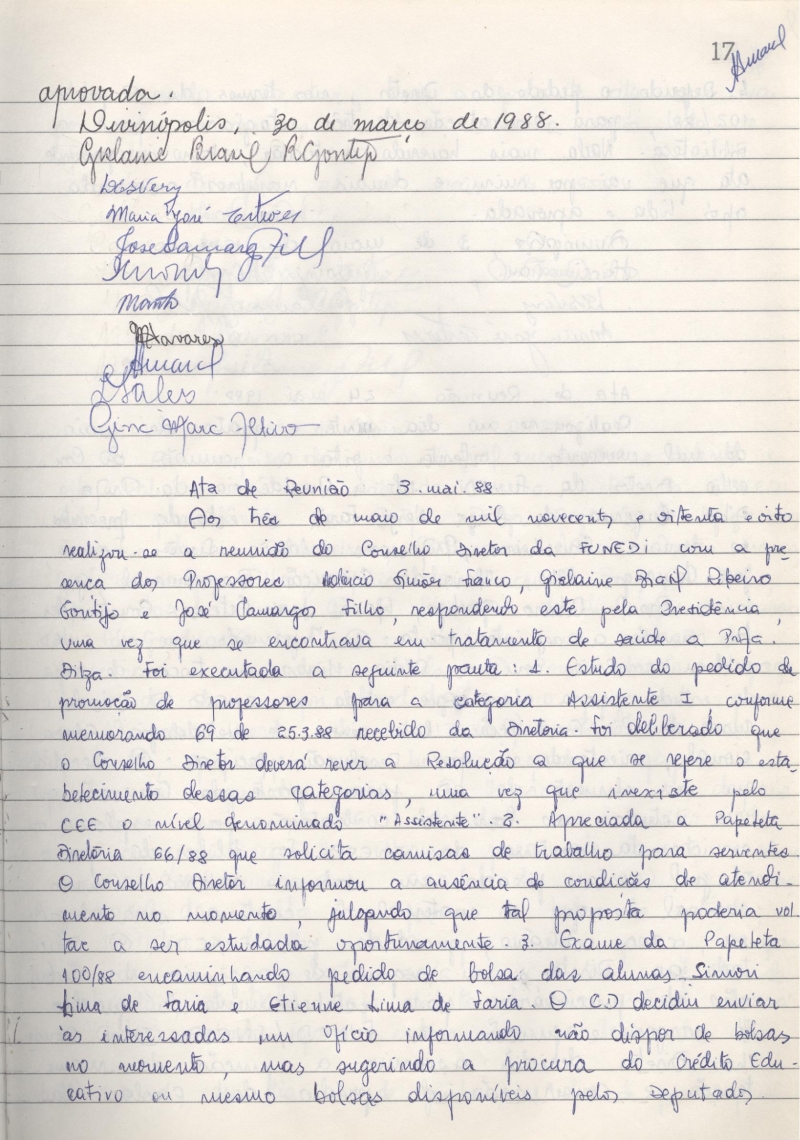 17
Amaral
aprovada.
Divinópolis, 30 de março de 1988.
Gislaine Brant R Gontijo
Maria José Esteves
José Camargos Filho
MTavares
Amaral
Sales
Ata de Reunião 3. mai. 88
Aos três de maio de mil novecentos e oitenta e oito
realizou-se a reunião do Conselho Diretor da FUNEDI com a pre
sença dos Professores Simões Franco, Gislaine Brant Ribeiro
Gontijo e José Camargos Filho, respondendo este pela Presidência,
uma vez que se encontrava em tratamento de saúde a Profa.
Dilza. Foi executada a seguinte pauta: 1. Estudo do pedido de
promoção de professores para a categoria Assistente I, conforme
memorando 69 de 25.3.88 recebido da Diretoria. Foi deliberado que
o Conselho Diretor deverá rever a Resolução a que se refere o esta-
belecimento dessas categorias, uma vez que inexiste pelo
CEE o nível denominado "Assistente". 2. Apreciada a Papeleta
Diretoria 66/88 que solicita camisas de trabalho para serventes.
O Conselho Diretor informou a ausência de condições de atendi-
mento no momento, julgando que tal proposta poderia vol
tar a ser estudada oportunamente. 3. Exame da Papeleta
100/88 encaminhando pedido de bolsa das alunas Simori
Lima de Faria e Etienne Lima de Faria. O CD decidiu enviar
às interessadas um ofício informando não dispor de bolsas
no momento, mas sugerindo a procura do Crédito Edu-
cativo ou mesmo bolsas disponíveis pelos Deputados.